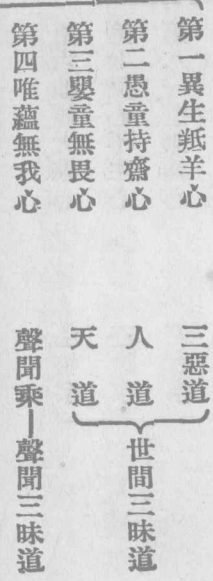 第一異生羝羊心　三惡道
第二愚童持齋心　人道
第三嬰童無畏心　天道
世間三昧道
第四唯蘊無我心　聲聞乘—聲聞三昧道